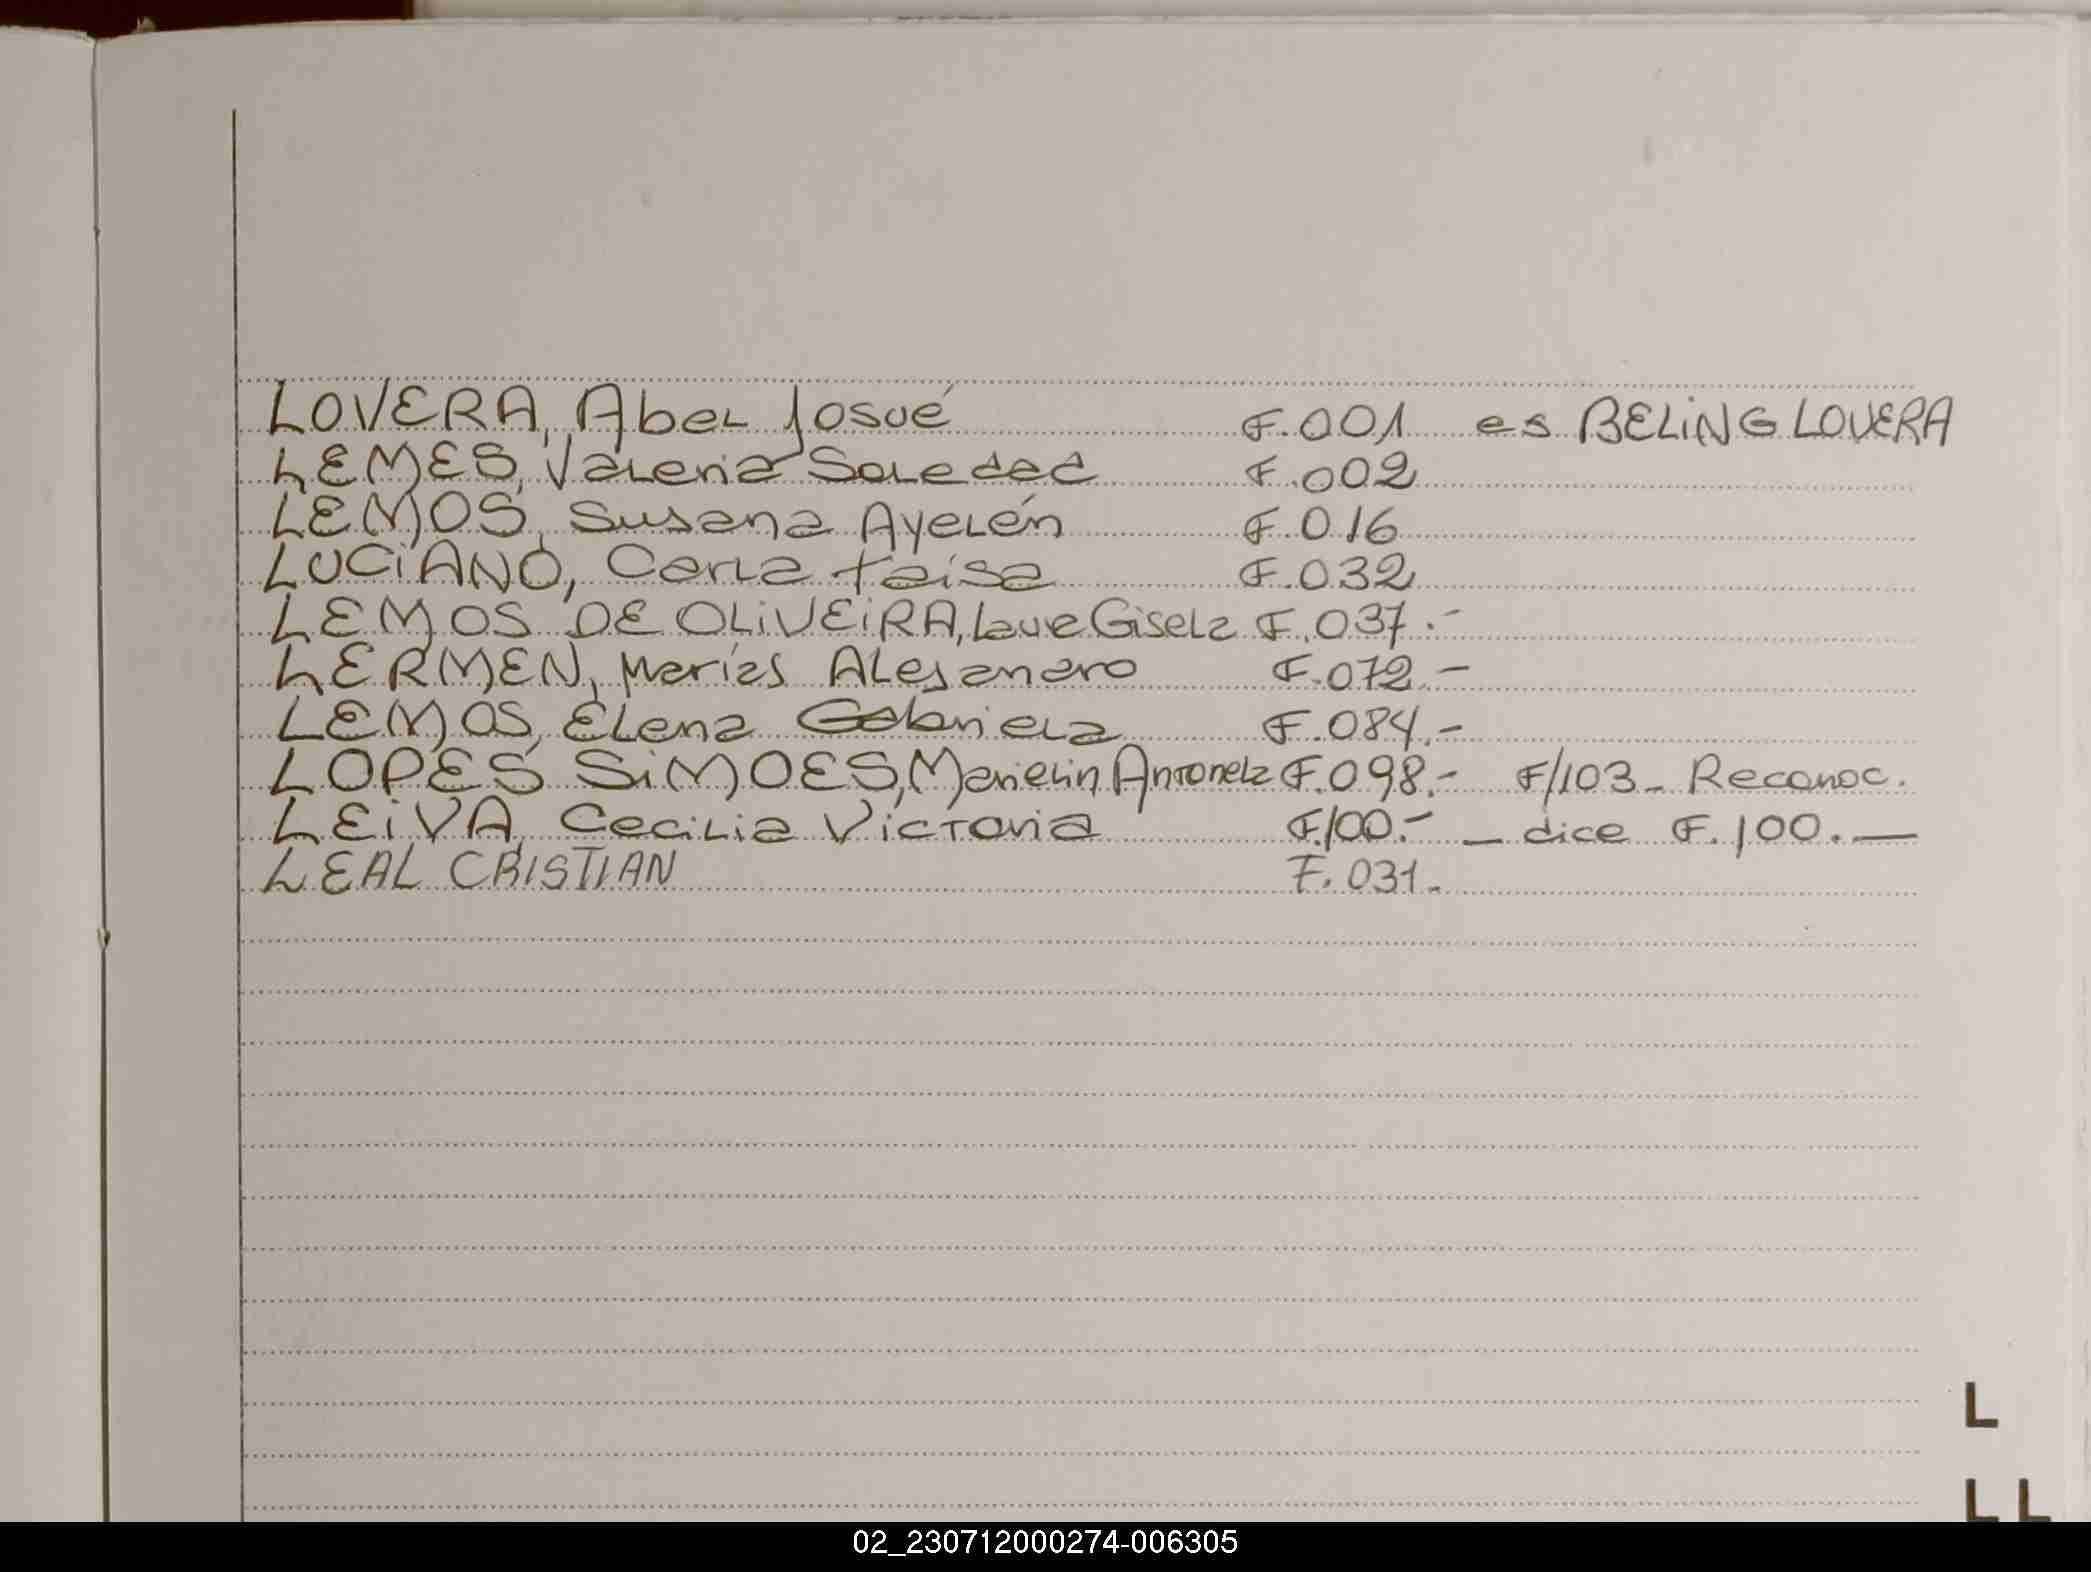 LOVERA, Abel Josué F.001 es BELiNG LOVERA
LEMES, Valeria Soledad F.002
LEMOS, Susana Ayelén F.016
LUCiANO, Carla taisa F.032
LEMOS DE OLiVEiRA, Laura Gisela F.037.-
LERMEN, Matías Alejandro F.072.-
LEMOS, Elena Gabriela F.084.-
LOPES SiMOES, Marielin Antonela F.098.- F/103- Reconoc.
LEiVA, Cecilia Victoria F.100.- - dice F.100.-
LEAL CRISTIAN F.031.
L
LL
02_230712000274-006305